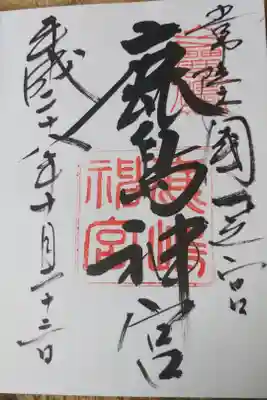 常陸國一之宮
鹿島神宮
平成二十八年十月二十三日
鹿嶋神宮